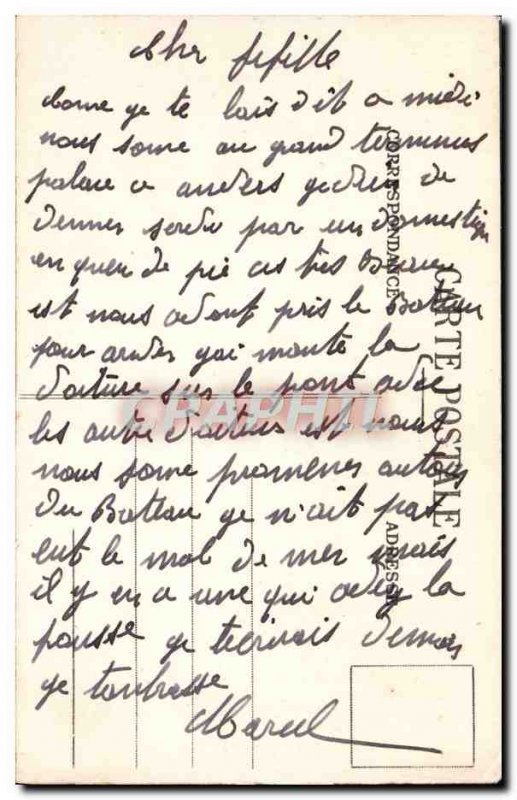 Cher fifille
come ge te lais dit a midi
nous some au grand terminus
palace a anvers ge viens de
denner servu par un domestique
en queu de pie ces très Beau
est nous avont pris le Bateau
pour anvers gai monté la
voiture sur le pont avec
les autre voiture est nous
nous some promener autour
du Bateau ge n'ait pas
eut le mal de mer mais
il y en a une qui avez la
pousse ge tecrirais demain
ge tenbrasse
Marcel
CARTE POSTALE
CORRESPONDANCE
ADRESSE
CPAPHIL